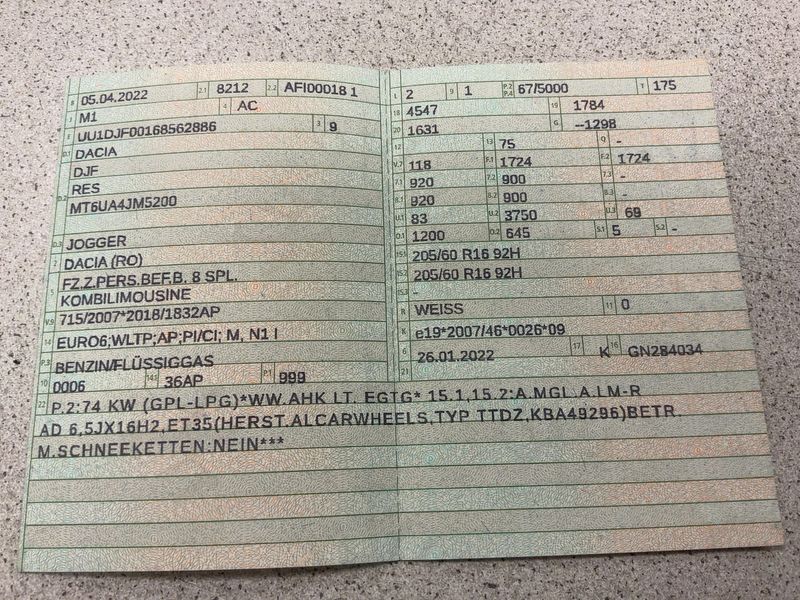 B 05.04.2022 2.1 8212 2.2 AFI00018 1
J M1 4 AC
E UU1DJF00168562886 3 9
D.1 DACIA
DJF
RES
D.2 MT6UA4JM5200
D.3 JOGGER
2 DACIA (RO)
5 FZ.Z.PERS.BEF.B. 8 SPL.
KOMBILIMOUSINE
V.9 715/2007*2018/1832AP
14 EURO6;WLTP;AP;PI/CI; M, N1 I
P.3 BENZIN/FLÜSSIGGAS
10 0006 14.1 36AP P.1 999
L 2 9 1 P.2 P.4 67/5000 T 175
18 4547 19 1784
20 1631 G --1298
12 13 75 Q -
V.7 118 F.1 1724 F.2 1724
7.1 920 7.2 900 7.3 -
8.1 920 8.2 900 8.3 -
U.1 83 U.2 3750 U.3 69
O.1 1200 O.2 645 S.1 5 S.2 -
15.1 205/60 R16 92H
15.2 205/60 R16 92H
15.3 -
R WEISS 11 0
K e19*2007/46*0026*09
6 26.01.2022 17 K 16 GN284034
21
22 P.2:74 KW (GPL-LPG)*WW.AHK LT. EGTG* 15.1,15.2:A.MGL.A.LM-R
AD 6,5JX16H2,ET35(HERST.ALCARWHEELS,TYP TTDZ,KBA49296)BETR.
M.SCHNEEKETTEN:NEIN***